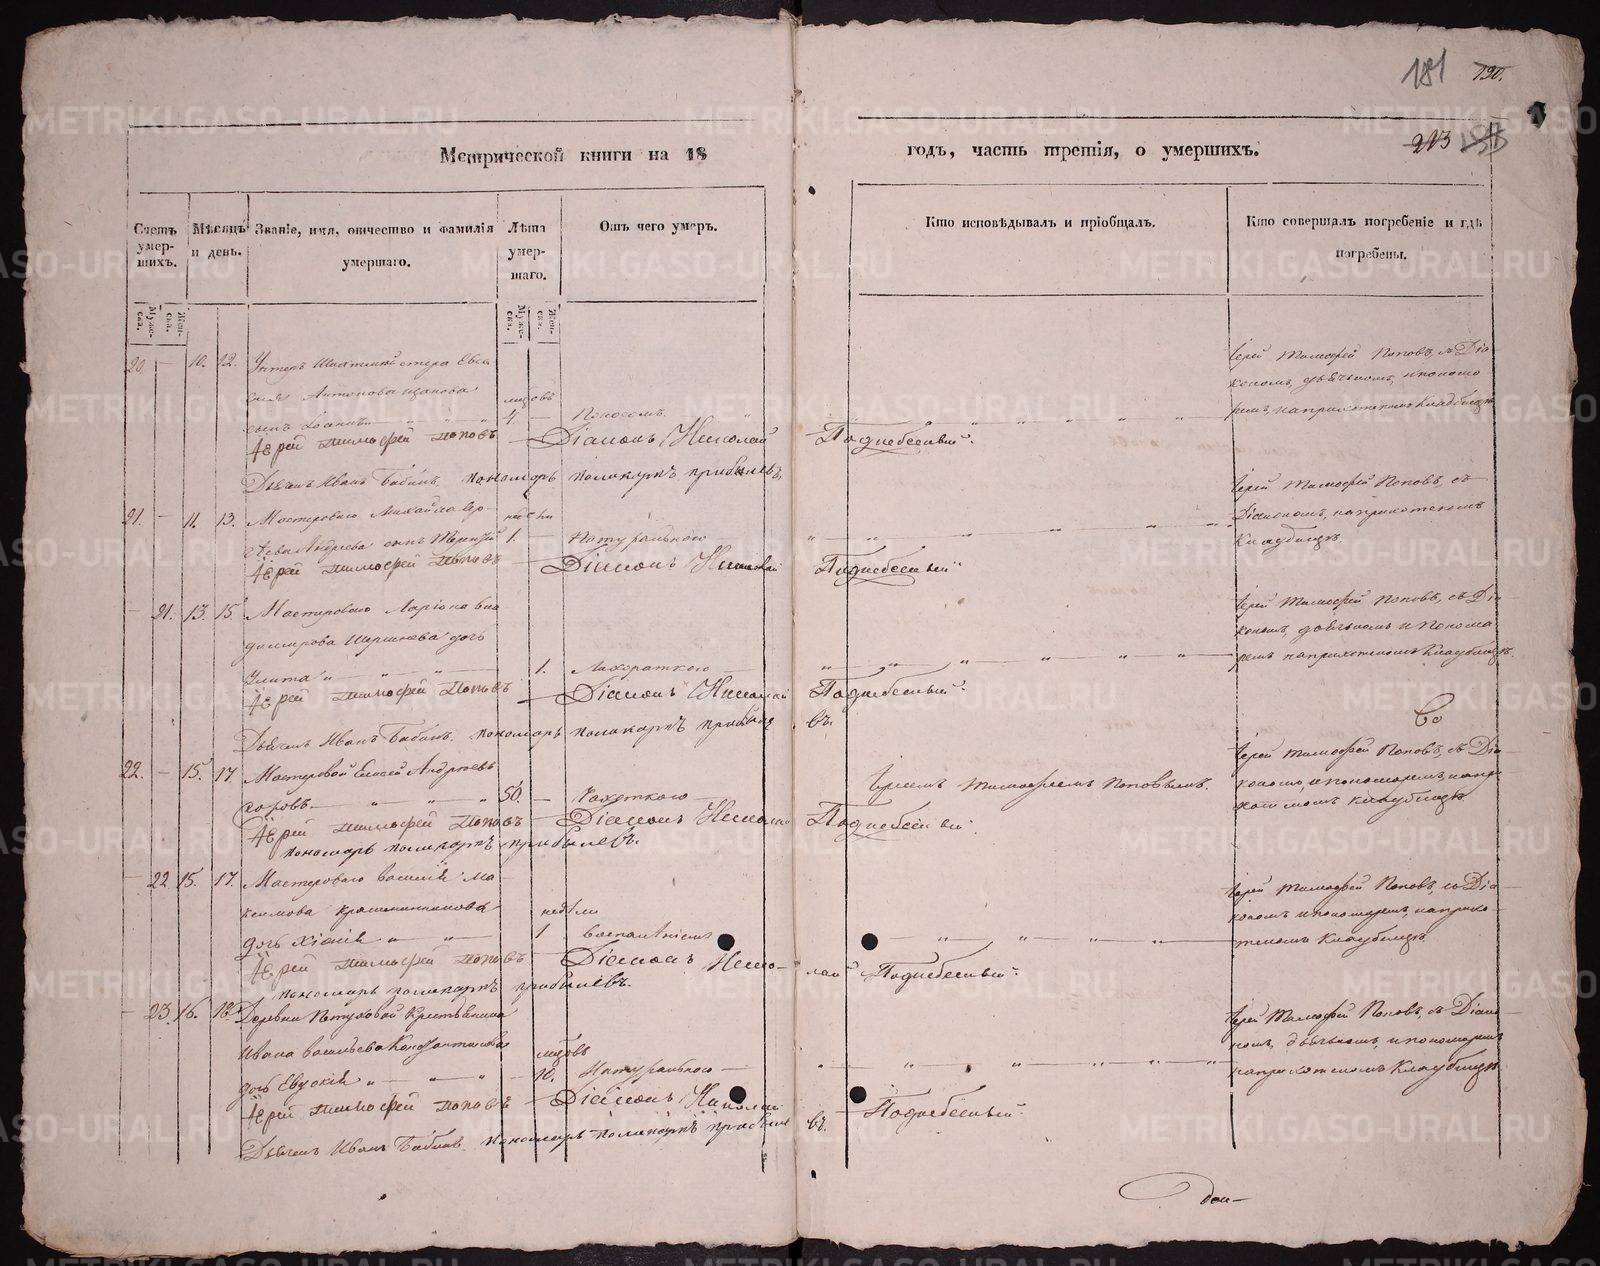 181 190.
213
Метрической книги на 18 годъ, часть третія, о умершихъ.
Счетъ умер-шихъ.
Мѣсяцъ и день.
Званіе, имя, отчество и фамилія умершаго.
Лѣта умер-шаго.
Отъ чего умеръ.
Кто исповѣдывалъ и пріобщалъ.
Кто совершалъ погребеніе и гдѣ погребены.
Муже-ска.
Жен-ска.
Муже-ска.
Жен-ска.
20. — 10. 12.
сынъ Іоаннъ 4 — Поносомъ
Іерей Тимофей Поповъ, съ Діа-
кономъ, дьячкомъ, и пономо
ремъ, на приходскомъ Кладбищѣ
Іерей Тимофей Поповъ — Діаконъ Николай Поднебесный.
Дьячекъ Иванъ Бабинъ. пономарь поликарпъ прибылевъ.
21. — 11. 13. Мастероваго Михайла
Андреева сынъ 1. — Натурально
Іерей Тимофей Поповъ, съ
Діакономъ, на приходскомъ
Кладбищѣ.
Іерей Тимофей Поповъ — Діаконъ Николай Поднебесный
— 21. 13. 15. Мастероваго Ларіона Вла
димирова дочь
Улита 1. Лихораткою
Іерей Тимофей Поповъ, съ Діа
кономъ, дьячкомъ и Понома
ремъ на приходскомъ Кладбищѣ.
Іерей Тимофей Поповъ — Діаконъ Николай Поднебесный.
Дьячекъ Иванъ Бабинъ. пономарь поликарпъ прибыле въ.
22. — 15. 17. Мастеровой Елисей Андреевъ
50. — Чахоткою
Іереемъ Тимофеемъ Поповымъ.
Іерей Тимофей Поповъ, съ Діа
кономъ, и пономаремъ, на при
хотскомъ кладбищѣ
Іерей Тимофей Поповъ — Діаконъ Николай Поднебесный
пономарь поликарпъ прибылевъ.
— 22. 15. 17. Мастероваго Василія Ма-
ксимова Крашенинникова недели
дочь Хіонія 1 воспаленіемъ
Іерей Тимофей Поповъ, со Діа
кономъ и пономаремъ, на прихо-
тскомъ Кладбищѣ
Іерей Тимофей Поповъ — Діаконъ Николай Поднебесный.
пономарь поликарпъ прибылевъ.
— 23. 16. 18. Деревни Петуховой Крестьянина
Ивана Васильева Константинова
дочь Евдокія 10. Натурально
Іерей Тимофей Поповъ, съ Діако
номъ, дьячкомъ, и пономаремъ
на приходскомъ Кладбищѣ
Іерей Тимофей Поповъ — Діаконъ Николай Поднебесный.
Дьячекъ Иванъ Бабинъ. пономарь поликарпъ прибыле въ.
METRIKI.GASO-URAL.RU